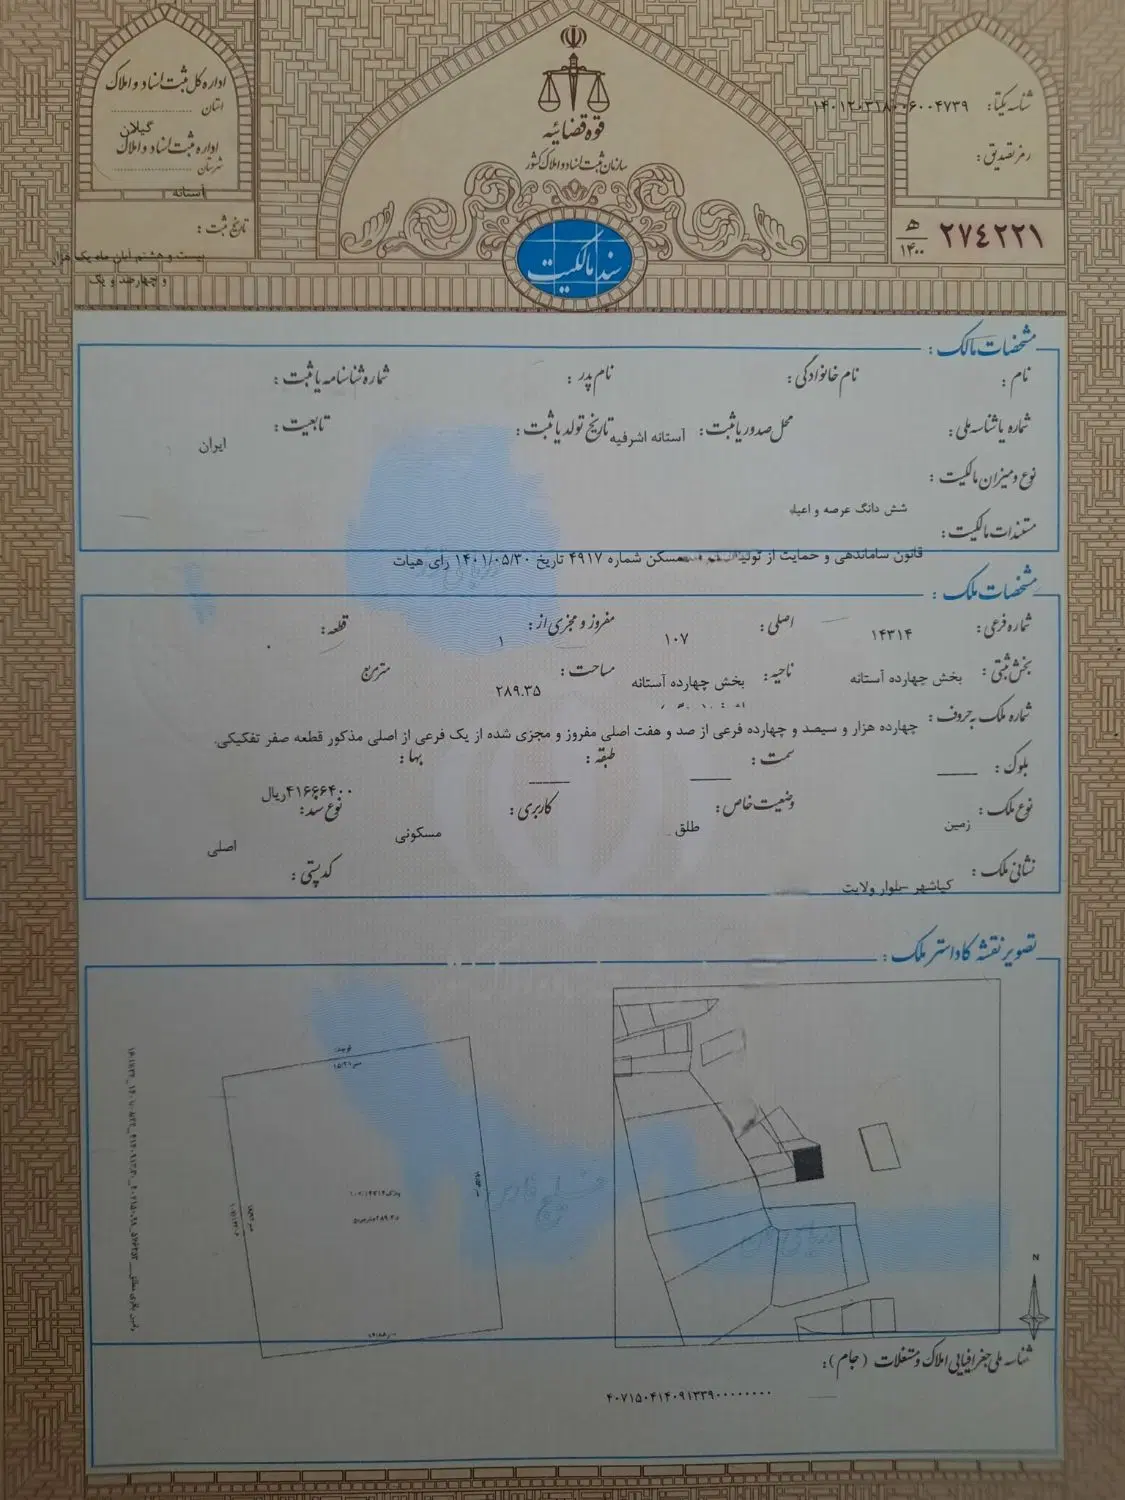 اداره کل ثبت اسناد و املاک
استان
گیلان
اداره ثبت اسناد و املاک
شهرستان
آستانه
تاریخ ثبت :
بیست و هشتم آبان ماه یک هزار
و چهارصد و یک
قوه قضائیه
سازمان ثبت اسناد و املاک کشور
سند مالکیت
شناسه یکتا: ۱۴۰۱۲۰۳۱۸۰۰۶۰۰۴۷۳۹
رمز تصدیق :
ه‍ ۱۴۰۰ ۲۷۴۲۲۱
مشخصات مالک :
نام : نام خانوادگی : نام پدر : شماره شناسنامه یا ثبت :
شماره یا شناسه ملی : محل صدور یا ثبت : آستانه اشرفیه تاریخ تولد یا ثبت : تابعیت : ایران
نوع و میزان مالکیت :
شش دانگ عرصه و اعیان
مستندات مالکیت :
قانون ساماندهی و حمایت از تولید مسکن شماره ۴۹۱۷ تاریخ ۱۴۰۱/۰۵/۳۰ رای هیات
مشخصات ملک :
شماره فرعی : ۱۴۳۱۴ اصلی : ۱۰۷ مفروز و مجزی از : ۱ قطعه : ۰
بخش ثبتی : بخش چهارده آستانه ناحیه : بخش چهارده آستانه مساحت : ۲۸۹.۳۵ متر مربع
شماره ملک به حروف : چهارده هزار و سیصد و چهارده فرعی از صد و هفت اصلی مفروز و مجزی شده از یک فرعی از اصلی مذکور قطعه صفر تفکیکی.
بلوک : سمت : طبقه : بها : ۴۱۶۶۶۴۰۰ ریال
نوع ملک : زمین وضعیت خاص : طلق کاربری : مسکونی نوع سند : اصلی
نشانی ملک : کیاشهر - بلوار ولایت کد پستی :
تصویر نقشه کاداستر ملک :
خلیج فارس
N
شناسه ملی جغرافیایی املاک و مستغلات (جام) :
۴۰۷۱۵۰۴۱۴۰۹۱۳۳۹۰۰۰۰۰۰۰۰۰